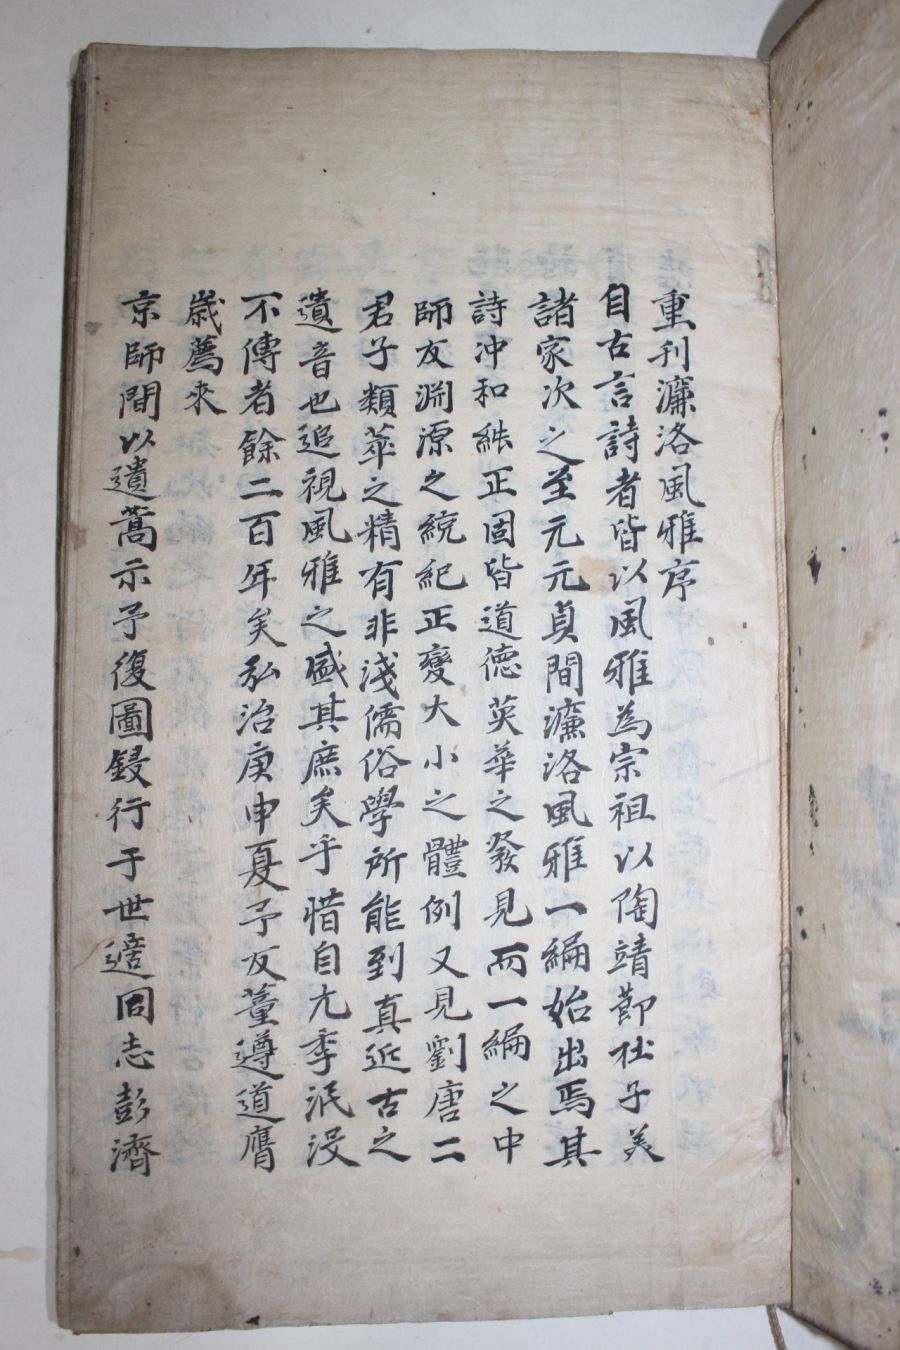 重刊濂洛風雅序
自古言詩者皆以風雅為宗祖以陶靖節杜子美
諸家次之至元元貞間濂洛風雅一編始出焉其
詩冲和純正固皆道德英華之發見而一編之中
師友渊源之統紀正變大小之體例又見劉唐二
君子類萃之精有非淺儒俗學所能到真近古之
遺音也追視風雅之盛其庶矣乎惜自九季泯没
不傳者餘二百年矣弘治庚申夏予友董遵道膺
歲薦来
京師間以遺藁示予復圖鋟行于世適同志彭濟